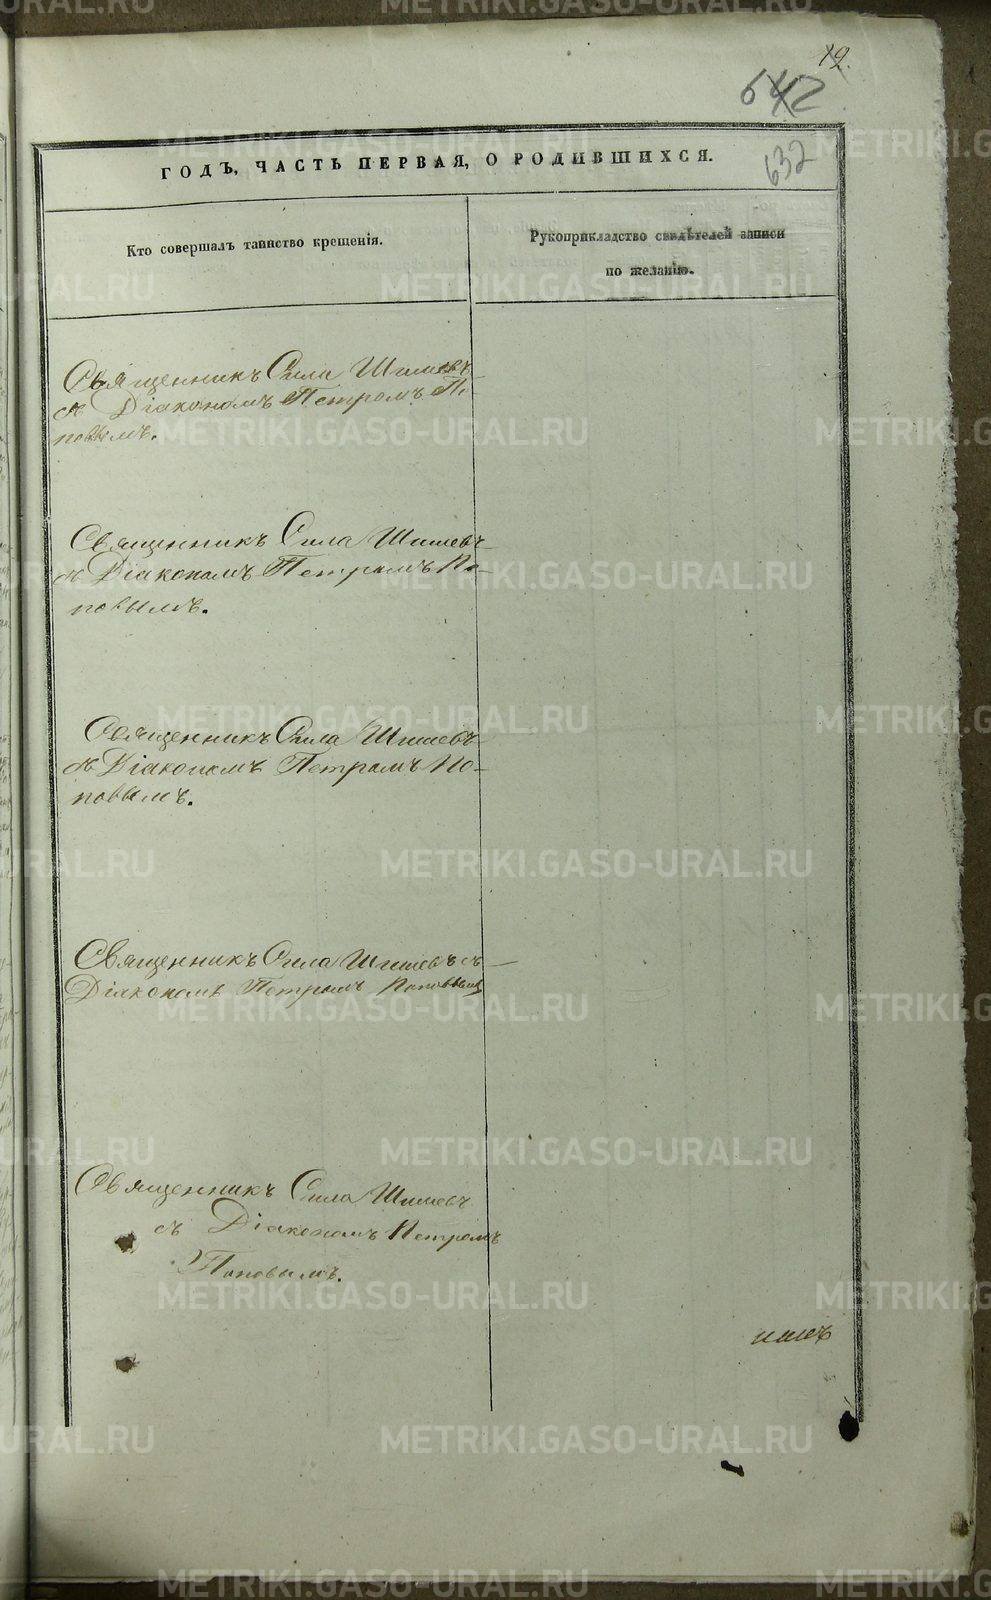 12.
642
632
ГОДЪ, ЧАСТЬ ПЕРВАЯ, О РОДИВШИХСЯ.
Кто совершалъ таинство крещенія.
Рукоприкладство свидѣтелей записи
по желанію.
Священникъ Сила Шишевъ
съ Діакономъ Петромъ По-
повымъ.
Священникъ Сила Шишевъ
съ Діакономъ Петромъ По-
повымъ.
Священникъ Сила Шишевъ
съ Діакономъ Петромъ По-
повымъ.
Священникъ Сила Шишевъ съ
Діакономъ Петромъ Поповымъ
Священникъ Сила Шишевъ
съ Діакономъ Петромъ
Поповымъ.
METRIKI.GASO-URAL.RU